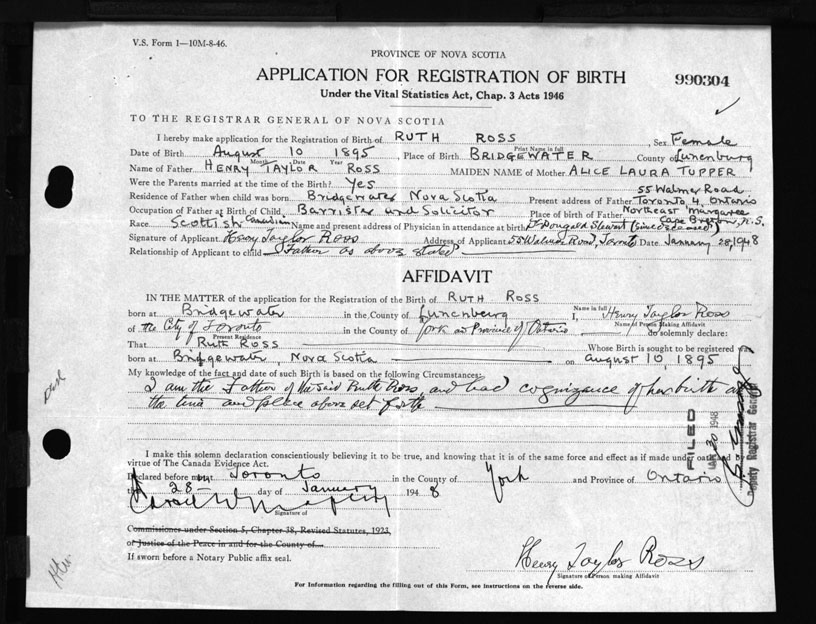 V.S. Form 1—10M-8-46.
PROVINCE OF NOVA SCOTIA
APPLICATION FOR REGISTRATION OF BIRTH
990304
Under the Vital Statistics Act, Chap. 3 Acts 1946
TO THE REGISTRAR GENERAL OF NOVA SCOTIA
I hereby make application for the Registration of Birth of RUTH ROSS, Sex Female
Print Name in full
Date of Birth August 10 1895, Place of Birth BRIDGEWATER County of Lunenburg
Month Date Year
Name of Father HENRY TAYLOR ROSS MAIDEN NAME of Mother ALICE LAURA TUPPER
Were the Parents married at the time of the Birth? Yes
55 Walmer Road
Residence of Father when child was born Bridgewater Nova Scotia Present address of Father Toronto 4, Ontario
Occupation of Father at Birth of Child Barrister and Solicitor Place of birth of Father Northeast Margaree Cape Breton, N.S.
Race Scottish Canadian Name and present address of Physician in attendance at birth Dr Dougald Stewart (since deceased)
Signature of Applicant Henry Taylor Ross Address of Applicant 55 Walmer Road, Toronto Date January 28, 1948
Relationship of Applicant to child Father as above stated
AFFIDAVIT
IN THE MATTER of the application for the Registration of Birth of RUTH ROSS
born at Bridgewater in the County of Lunenburg I, Henry Taylor Ross
Name in full
of the City of Toronto in the County of York and Province of Ontario do solemnly declare:
Present Residence Name of Person Making Affidavit
That Ruth Ross Whose Birth is sought to be registered was
born at Bridgewater, Nova Scotia on August 10, 1895
My knowledge of the fact and date of such Birth is based on the following Circumstances:
I am the Father of the said Ruth Ross, and had cognizance of her birth at
the time and place above set forth
FILED
JAN 30 1948
Deputy Registrar General
I make this solemn declaration conscientiously believing it to be true, and knowing that it is of the same force and effect as if made under oath and
virtue of The Canada Evidence Act.
Declared before me at Toronto in the County of York and Province of Ontario
this 28th day of January 1948
Signature of
Commissioner under Section 5, Chapter 38, Revised Statutes, 1923,
or Justice of the Peace in and for the County of
If sworn before a Notary Public affix seal.
Henry Taylor Ross
Signature of Person making Affidavit
For Information regarding the filling out of this Form, see instructions on the reverse side.